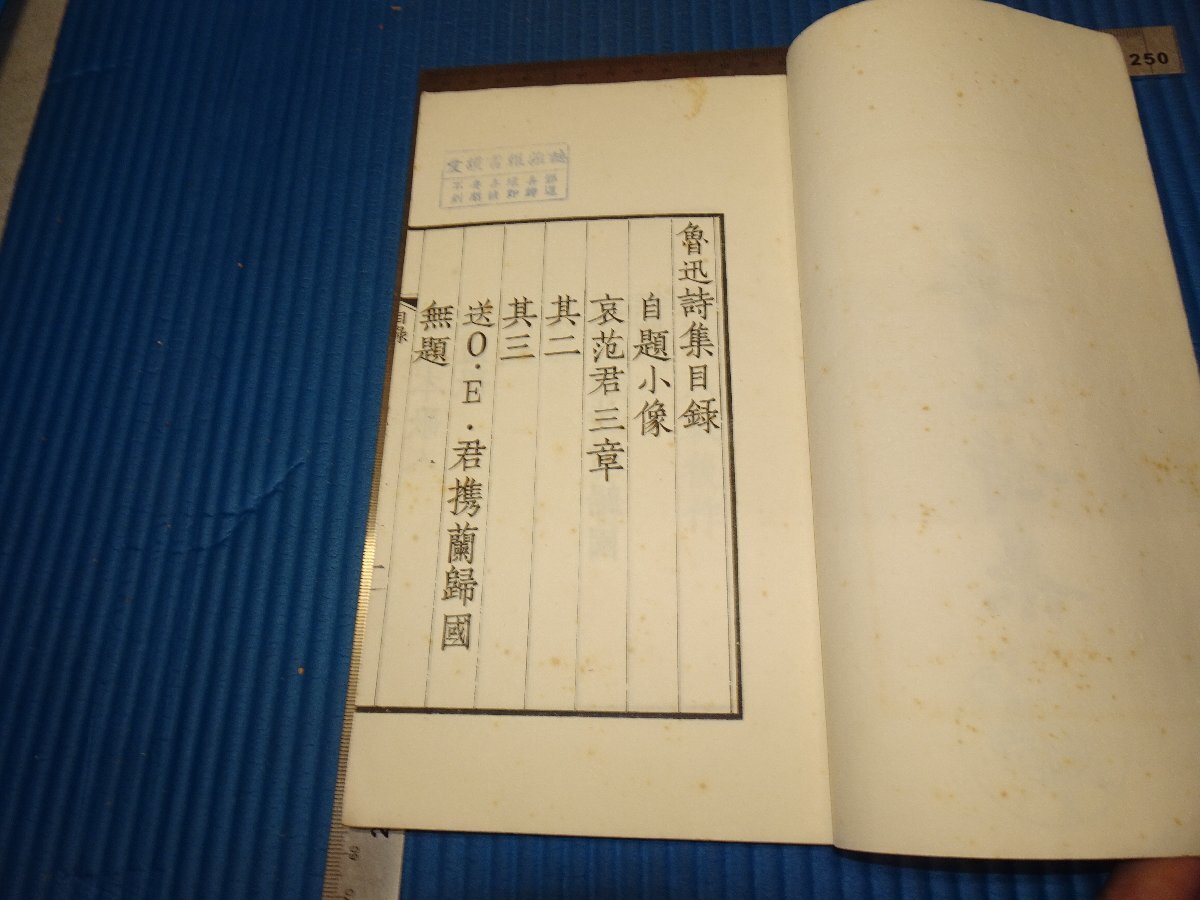 魯迅詩集目録
自題小像
哀范君三章
其二
其三
送O.E.君携蘭歸國
無題
目録
一
250